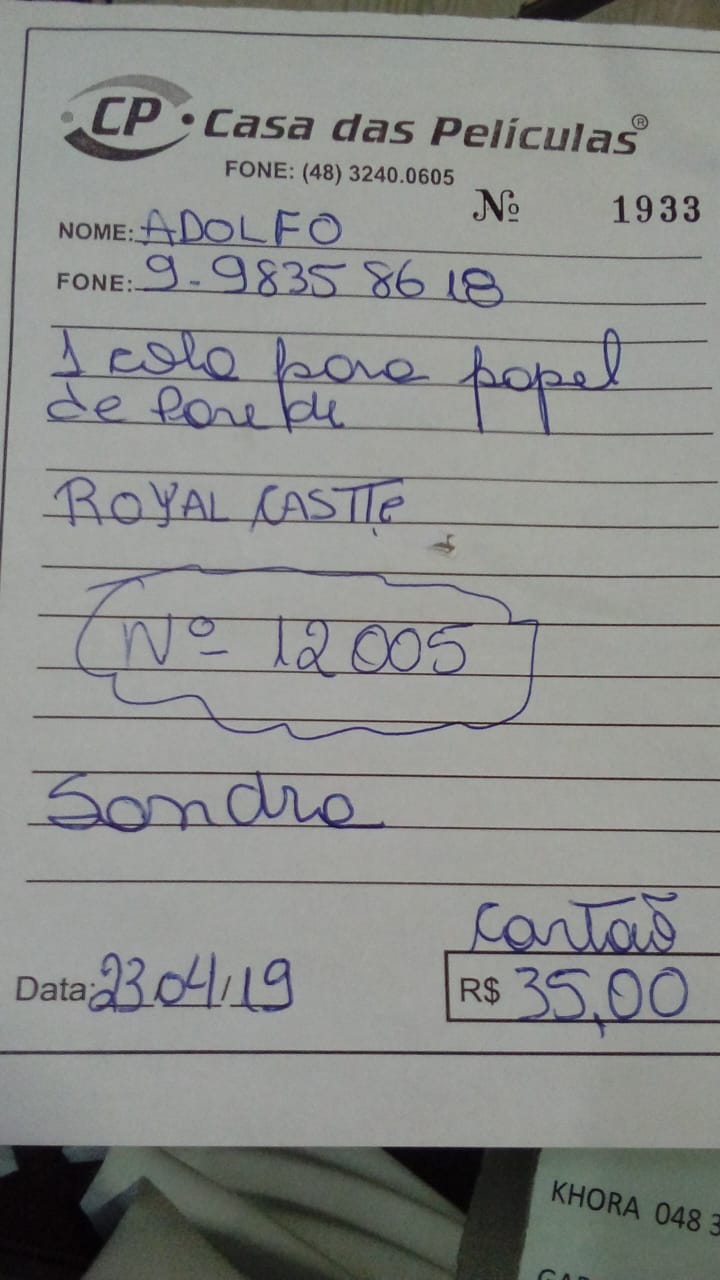 CP • Casa das Películas®
FONE: (48) 3240.0605
Nº 1933
NOME: ADOLFO
FONE: 9-9835 8618
1 cola para papel
de Parede
ROYAL CASTTe
Nº 12005
Sandra
cartão
Data: 23.04/19
R$ 35,00
KHORA 048 3